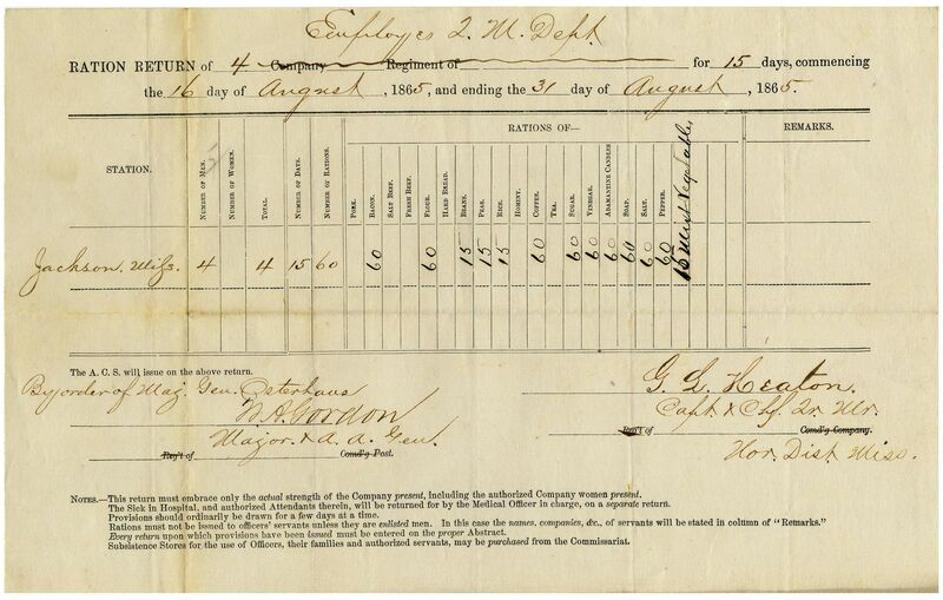 Employes Q. M. Dept.
RATION RETURN of 4 Company Regiment of for 15 days, commencing
the 16 day of August, 1865, and ending the 31 day of August, 1865.
STATION.
NUMBER OF MEN.
NUMBER OF WOMEN.
TOTAL.
NUMBER OF DAYS.
NUMBER OF RATIONS.
RATIONS OF—
PORK.
BACON.
SALT BEEF.
FRESH BEEF.
FLOUR.
HARD BREAD.
BEANS.
PEAS.
RICE.
HOMINY.
COFFEE.
TEA.
SUGAR.
VINEGAR.
ADAMANTINE CANDLES
SOAP.
SALT.
PEPPER.
Mixd Vegetables
REMARKS.
Jackson. Miss. 4 4 15 60 60 60 15 15 15 60 60 60 60 60 60 60 15
The A. C. S. will issue on the above return.
By order of Maj. Gen. Osterhaus
W. A. Gordon
Major. & A. A. Gen.
Reg't of Comd'g Post.
G. L. Heaton.
Capt. & Chf. Qr. Mr.
Reg't of Comd'g Company.
Nor. Dist. Miss.
NOTES.—This return must embrace only the actual strength of the Company present, including the authorized Company women present.
The Sick in Hospital, and authorized Attendants therein, will be returned for by the Medical Officer in charge, on a separate return.
Provisions should ordinarily be drawn for a few days at a time.
Rations must not be issued to officers' servants unless they are enlisted men. In this case the names, companies, &c., of servants will be stated in column of "Remarks."
Every return upon which provisions have been issued must be entered on the proper Abstract.
Subsistence Stores for the use of Officers, their families and authorized servants, may be purchased from the Commissariat.